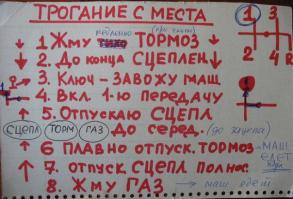 ТРОГАНИЕ С МЕСТА
1 Жму ТОРМОЗ
2. До конца СЦЕПЛЕН.
3. Ключ - ЗАВОЖУ МАШ
4. Вкл. 1-ю Передачу
5. Отпускаю СЦЕПЛ
СЦЕПЛ ТОРМ ГАЗ До серед.
6 ПЛАВНО отпуск. ТОРМОЗ - МАШ ЕДЕТ
7. отпуск. СЦЕПЛ полнос.
8. Жму ГАЗ - маш едет
1 3
2 4 R